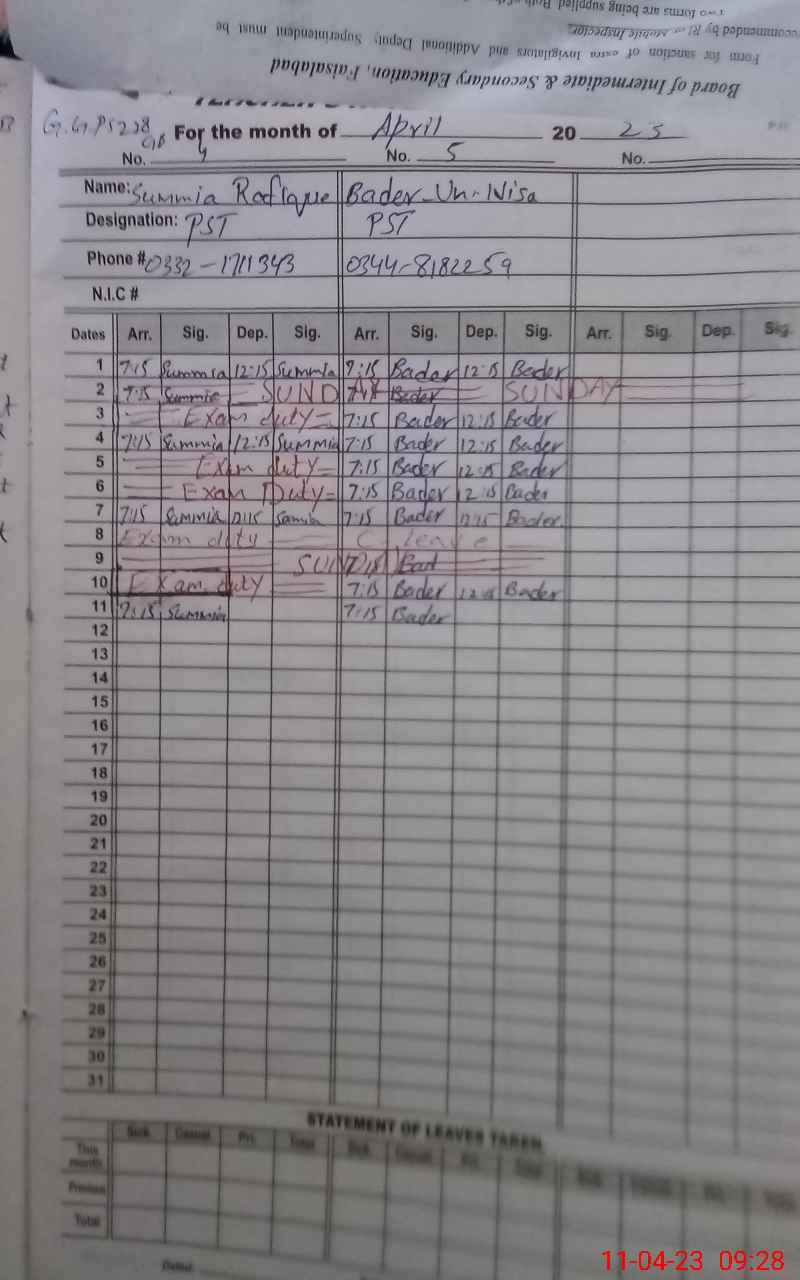 Two forms are being supplied. Both
recommended by RI or Mobile Inspector.
Form for sanction of extra Invigilators and Additional Deputy Superintendent must be
Board of Intermediate & Secondary Education, Faisalabad
For the month of April 20 23
No. 4 No. 5 No.
Name: Summia Rafique Bader-Un-Nisa
Designation: PST PST
Phone # 0332-1711343 0344-8182259
N.I.C #
Dates Arr. Sig. Dep. Sig. Arr. Sig. Dep. Sig. Arr. Sig. Dep. Sig.
1 7:15 Summia 12:15 Summia 7:15 Bader 12:15 Bader
2 7:15 Summia SUNDAY Bader SUNDAY
3 Exam duty 7:15 Bader 12:15 Bader
4 7:15 Summia 12:15 Summia 7:15 Bader 12:15 Bader
5 Exam duty 7:15 Bader 12:15 Bader
6 Exam Duty 7:15 Bader 12:15 Bader
7 7:15 Summia 12:15 Summia 7:15 Bader 12:15 Bader
8 Exam duty C leave
9
10 Exam duty 7:15 Bader 12:15 Bader
11 7:15 Summia 7:15 Bader
12
13
14
15
16
17
18
19
20
21
22
23
24
25
26
27
28
29
30
31
STATEMENT OF LEAVES TAKEN
Sick Casual Pri. Total Sick Casual Pri. Total Sick Casual Pri. Total
This month
Previous
Total
Dated
11-04-23 09:28